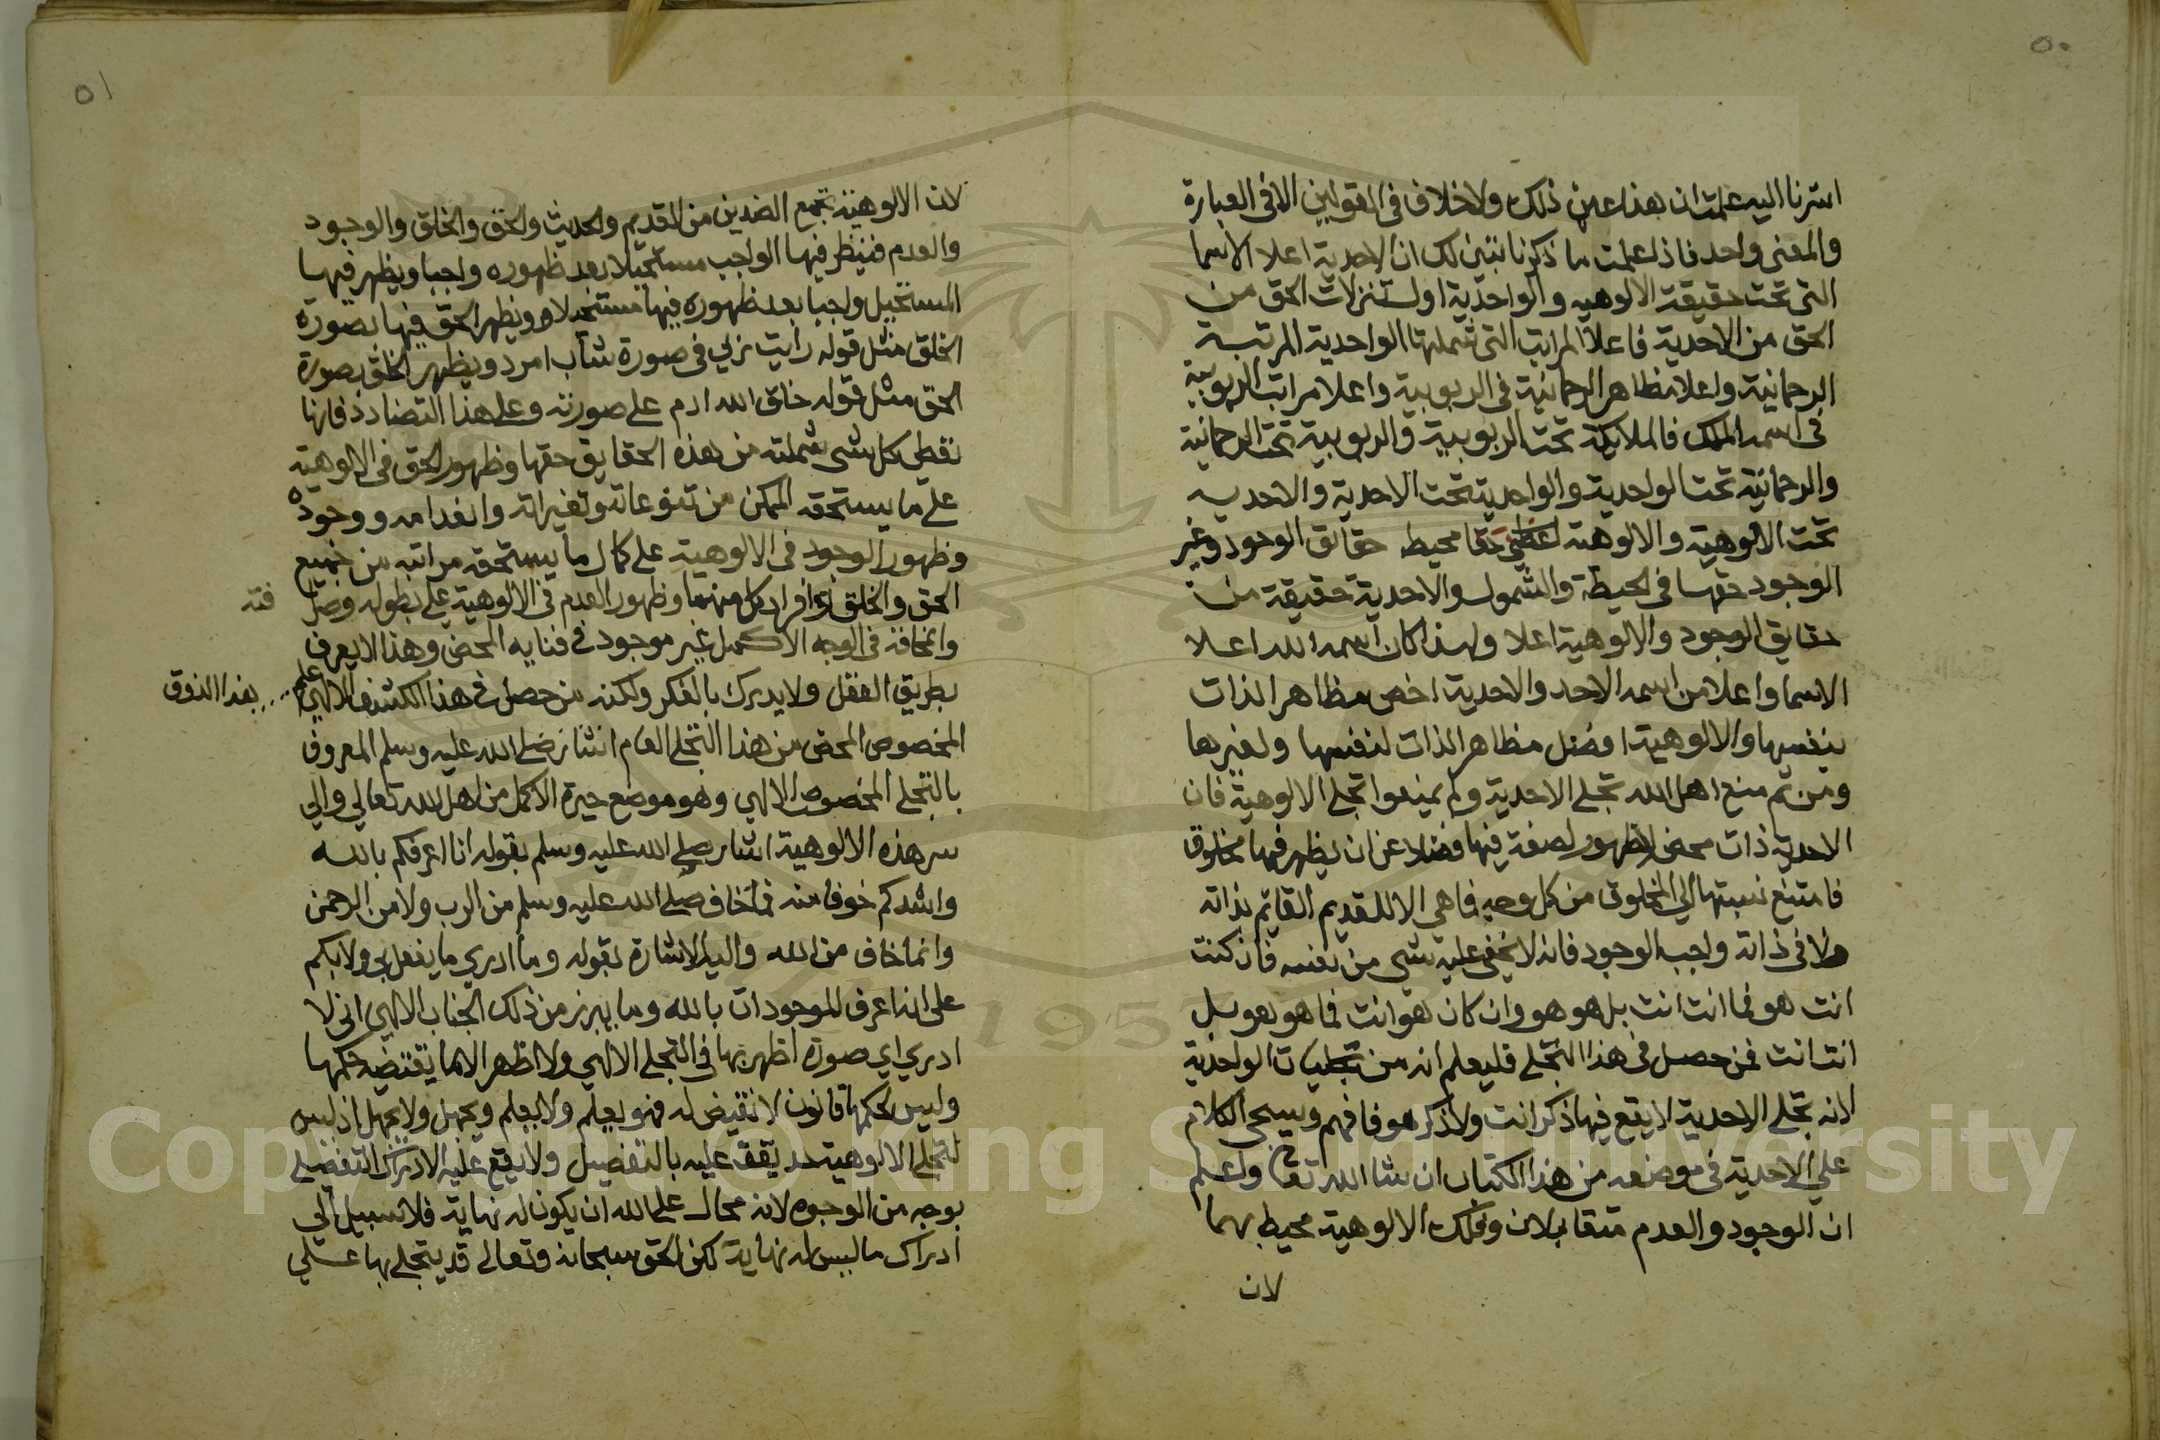 ٥٠
اشرنا اليه علمت ان هذا عين ذلك ولا خلاف فى القولين الا فى العبارة
والمعنى واحد فاذا علمت ما ذكرنا تبين لك ان الاحدية اعلا الاسما
التى تحت حقيقة الالوهيه والواحدية اول تنزلات الحق من
الحق من الاحدية فاعلا المراتب التى شملتها الواحدية المرتبة
الرحمانية واعلا مظاهر الرحمانية فى الربوبية واعلا مراتب الربوبية
فى اسمه الملك فالملايكة تحت الربوبية والربوبية تحت الرحمانية
والرحمانية تحت الواحدية والواحدية تحت الاحدية والاحديه
تحت الالوهية والالوهية حقا محيط حقائق الوجود وغير
الوجود حقها فى الحيطة والشمول والاحدية حقيقة من
حقايق الوجود والالوهية اعلا ولهذا كان اسمه الله اعلا
الاسما واعلا من اسمه الاحد والاحدية اخص مظاهر الذات
بنفسها والالوهية افضل مظاهر الذات لنفسها ولغيرها
ومن ثم منع اهل الله تجلى الاحدية ولم يمنعوا تجلى الالوهية فان
الاحدية ذات محض لاظهور لصفة فيها فضلا عن ان يظهر فيها مخلوق
فامتنع نسبتها الي المخلوق من كل وجه فما هى الا للقديم القايم بذاته
ولا فى ذاته واجب الوجود فانه لا يخفى عليه شى من نفسه فان كنت
انت هو فما انت انت بل هو هو وان كان هو انت فما هو هو بل
انت انت فمن حصل فى هذا التجلى فليعلم انه من تجليات الواحدية
لانه تجلى الاحدية لا يقع فيها ذكر انت ولا ذكر هو فافهم وسيجى الكلام
علي الاحدية فى موضعه من هذا الكتاب ان شا الله تعالى واعلم
ان الوجود والعدم متقابلان وفلك الالوهية محيط بهما
لان
٥١
لان الالوهية تجمع الضدين من القديم والحديث والحق والخلق والوجود
والعدم فيظهر فيها الواجب مستحيلا بعد ظهوره واجبا ويظهر فيها
المستحيل واجبا بعد ظهوره فيها مستحيلا ويظهر الحق فيها بصورة
الخلق مثل قوله رايت ربي فى صورة شاب امرد ويظهر الخلق بصورة
الحق مثل قوله خلق الله ادم على صورته وعلى هذا التضادد فانها
تعطى كل شى شملته من هذه الحقايق حقها وظهور الحق فى الالوهية
على ما يستحقه الممكن من تنوعاته وتغيراته وانعدامه ووجوده
وظهور الوجود فى الالوهية على كمال ما يستحقه مراتبه من جميع
الحق والخلق وافراد كل منهما وظهور العدم فى الالوهية على بطونه وصرا
فته
وانمحاقه فى الوجه الاكمل غير موجود فى فنايه المحض وهذا لا يعرف
بطريق العقل ولا يدرك بالفكر ولكنه من حصل فى هذا الكشف الالهى علم
هذا الذوق
المخصوص المحض من هذا التجلى العام صلى الله عليه وسلم المعروف
بالتجلى المخصوص الالهي وهو موضع حيرة الاكمل من اهل الله تعالي والي
سر هذه الالوهية اشار صلى الله عليه وسلم بقوله انا اعرفكم بالله
واشدكم خوفا منه فما خاف صلى الله عليه وسلم من الرب ولا من الرحمن
وانما خاف من الله واليه الاشارة بقوله وما ادري ما يفعل بي ولا بكم
على انه اعرف الموجودات بالله وما يبرز من ذلك الجناب الالهي اني لا
ادري اي صورة اظهر بها فى التجلى الالهي ولا اظهر الا بما يقتضيه حكمها
وليس لحكمها قانون لا نقيض له فهو يعلم ولا يعلم ويجهل ولا يجهل اذ ليس
لتجلى الالوهية حد يقف عليه بالتفصيل ولا يقع عليه الادراك التفصيلى
بوجه من الوجوه لانه محال على الله ان يكون له نهاية فلا سبيل الي
ادراك ما ليس له نهاية لكن الحق سبحانه وتعالى قد يتجلى بها على
Copyright © King Saud University
1957